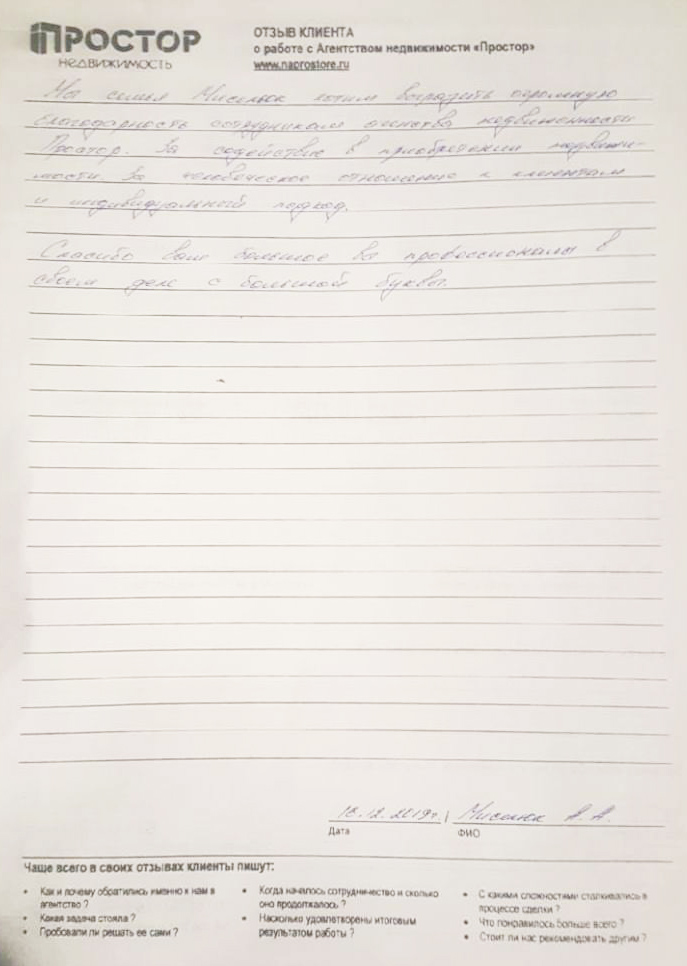 ПРОСТОР
НЕДВИЖИМОСТЬ
ОТЗЫВ КЛИЕНТА
о работе с Агентством недвижимости «Простор»
www.naprostore.ru
Мы семья Мисенюк хотим выразить огромную
благодарность сотрудникам агенства недвижемости
Простор. За содействие в приобретении недвижи-
мости. За человеческое отношение к клиентам
и индивидуальный подход.
Спасибо вам большое вы профессионалы в
своем деле с большой буквы.
12.2019г. / Мисенюк А. А.
Дата ФИО
Чаще всего в своих отзывах клиенты пишут:
• Как и почему обратились именно к нам в
агентство ?
• Какая задача стояла ?
• Пробовали ли решать ее сами ?
• Когда началось сотрудничество и сколько
оно продолжалось ?
• Насколько удовлетворены итоговым
результатом работы ?
• С какими сложностями сталкивались в
процессе сделки ?
• Что понравилось больше всего ?
• Стоит ли нас рекомендовать другим ?